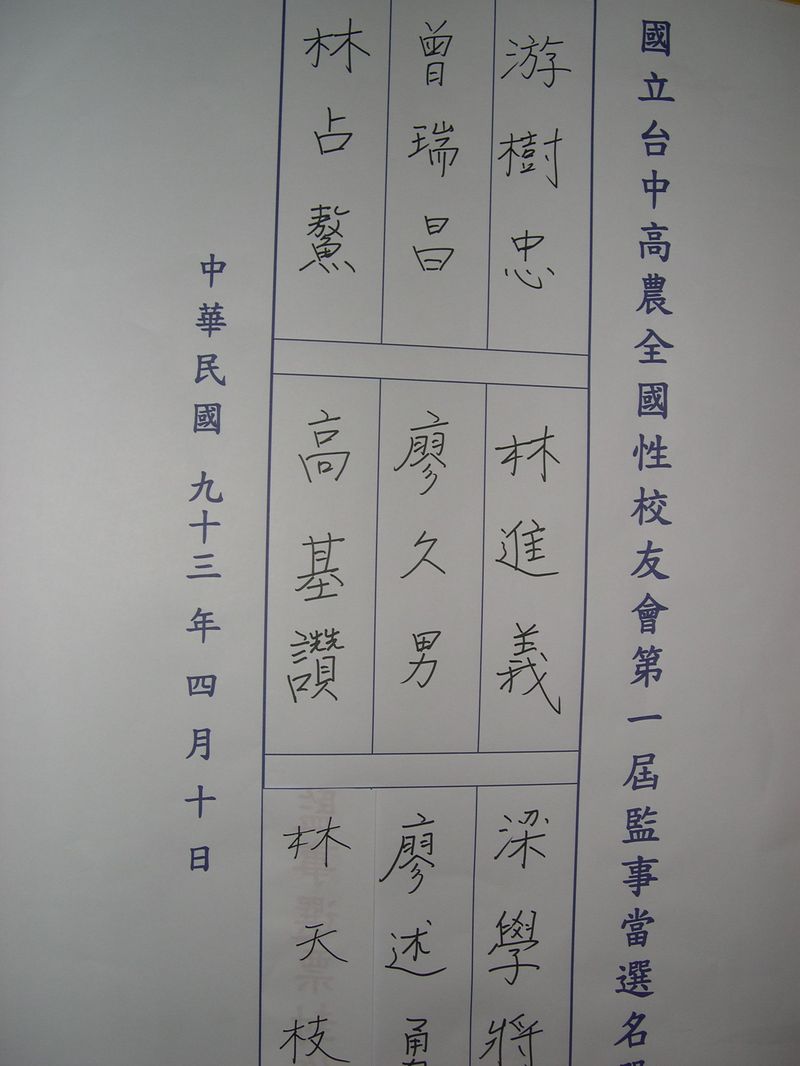 國立台中高農全國性校友會第一屆監事當選名
游樹忠
曾瑞昌
林占鰲
林進義
廖久男
高基讚
梁學將
廖述勇
林天枝
中華民國 九十三年四月十日